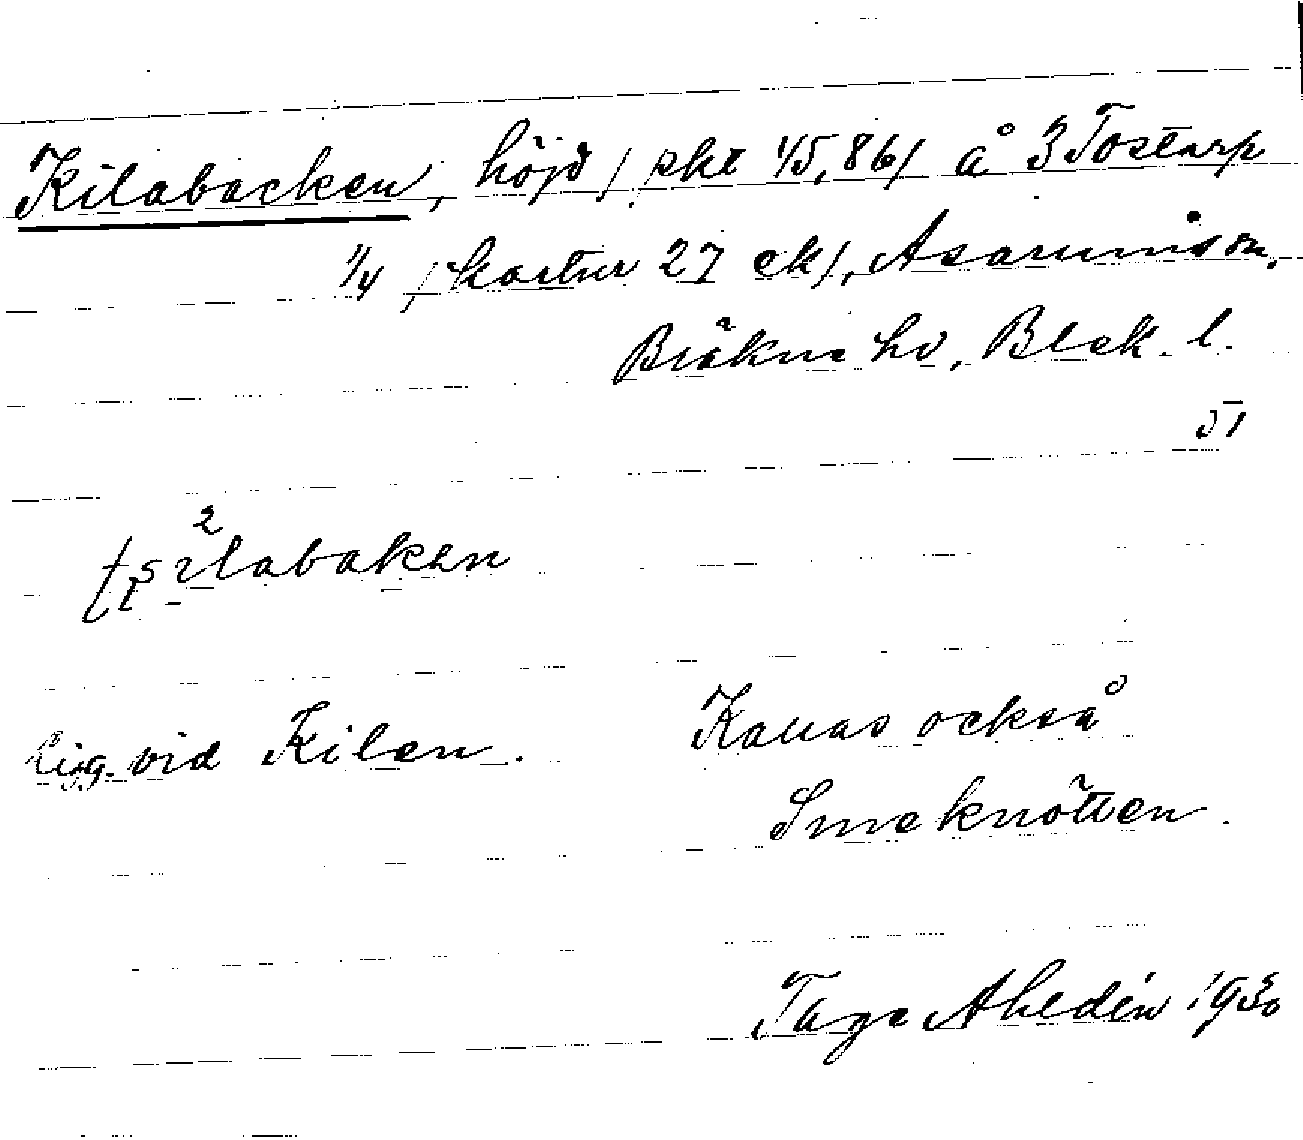 Kilabacken, höjd / pkt 15,86/ å 3 Tostarp
1/4 / kartur 27 ek/, Asarums sn,
Bräkne hd, Blek. l.
51
Ligg. vid Kilen. Kallas också
Smeknötten.
Tage Ahldén 1930